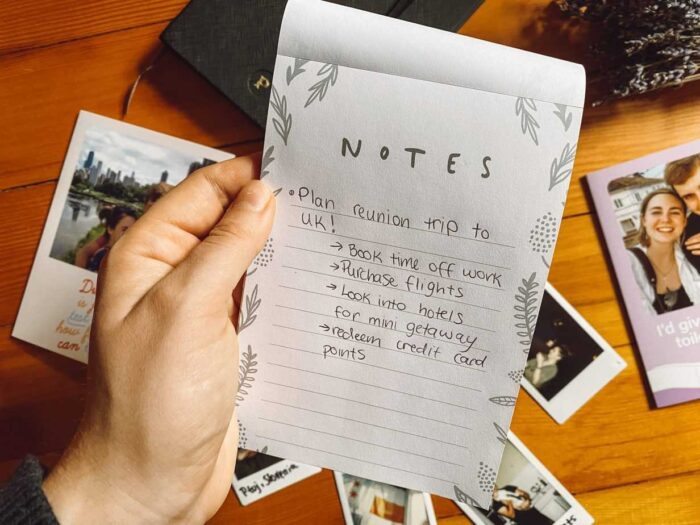 NOTES
• Plan reunion trip to
UK!
→ Book time off work
→ Purchase flights
→ Look into hotels
for mini getaway
→ redeem credit card
points
I'd giv
toil
how
can